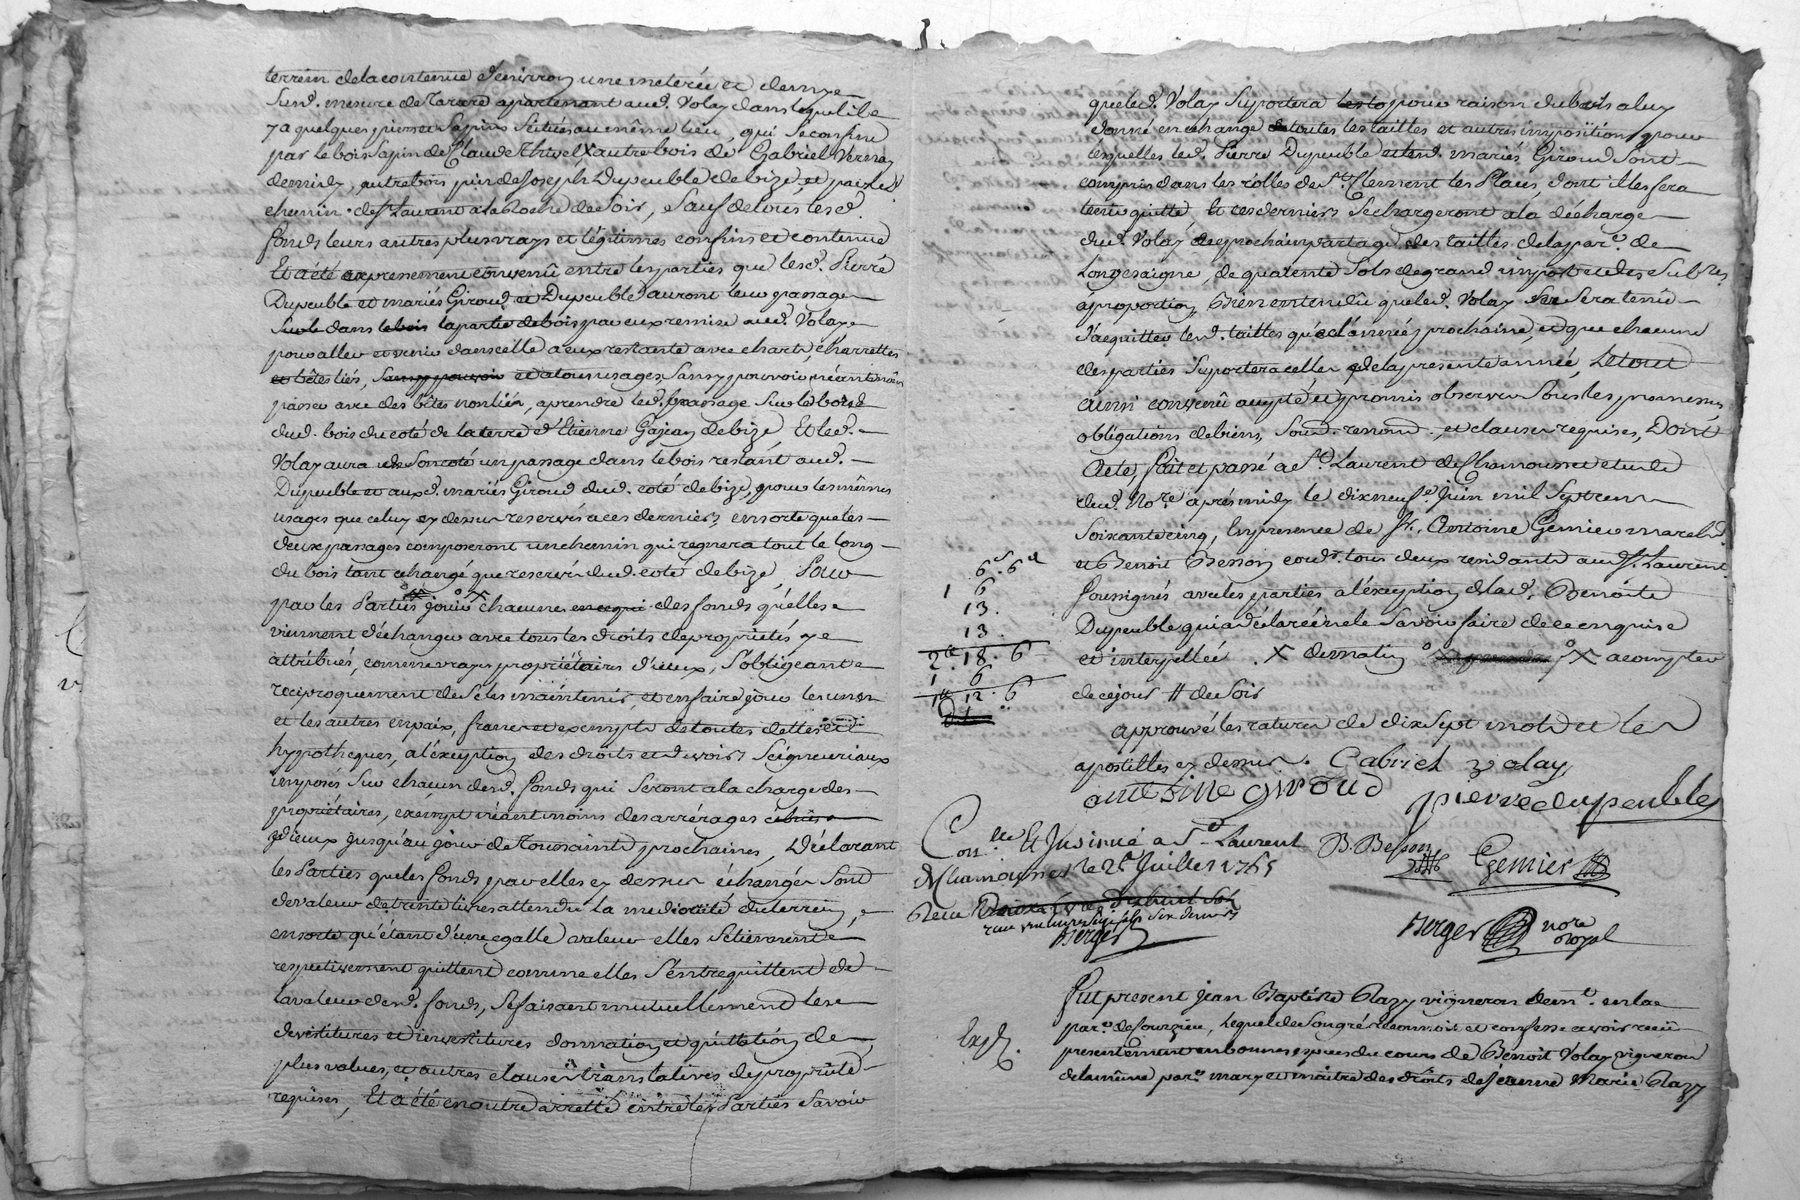 terrein de la contenue d'environ une meterée et demye
Susd. mesure de Tarare apartenant aud. Volay dans lequel il
y a quelques pieces Sapins Scitué au même lieu, qui Se confine
par le bois Sapin de Claude Thivel X autre bois de Gabriel Vernay
de midy, autre bois pin de Joseph Dupeuble de bize, et par le
chemin de St. Laurent a la Roche de Soir, Sauf de tous lesd.
fonds leurs autres plus vrays et légitimes confins et contenue
Et a été expressement convenû entre les parties que lesd. Pierre
Dupeuble et mariés Giroud et Dupeuble auront leur passage
Sur le dans le bois la partie de bois par eux remise aud. Volay
pour aller et venir dans celle a eux restante avec chars, charrettes
et bêtes liés, Sans pouvoir et a tous usages Sans y pouvoir néantmoins
passer avec des bêtes non liés, a prendre led. passage Sur le bord
dud. bois du coté de la terre d'Etienne Gajean de bize, Et led.
Volay aura de Son coté un passage dans le bois restant aud.
Dupeuble et auxd. mariés Giroud dud. coté de bize, pour les mêmes
usages que celuy cy dessus reservés a ces derniers en sorte que les
deux passages composeront un chemin qui régnera tout le long
du bois tant échangé que reservé dud. coté de bize, Pour
par les Parties jouir X chacune des fonds qu'elles
viennent d'échanger avec tous les droits de propriétés y
attribués, comme vrays propriétaires d'iceux, S'obligeant
reciproquement de Se les maintenir, et en faire jouir les uns
et les autres en paix, francs et exempts de toutes dettes et
hypotheques, a l'éxception des droits et devoirs Seigneuriaux
imposés Sur chacun desd. fonds qui Seront a la charge des
propriétaires, exémpt néantmoins des arrérages
d'iceux jusqu'au jour de Toussaints prochaines, Déclarant
les Parties que les fonds par elles cy dessus échangés Sont
de valeur de trente livres attendu la médiocrité du terrein,
en sorte qu'étant d'une egalle valeur elles Se tiennent
respectivement quittent comme elles S'entrequittent de
la valeur desd. fonds, Se faisant mutuellement les
devestitures et investitures donnation et quittation de
plus values et autres clauses translatives de propriété
requises, Et a été en outre arretté entre les Parties Savoir
que led. Volay Suportera pour raison du bois a luy
donné en échange de toutes les tailles et autres impositions pour
lesquelles led. Pierre Dupeuble et lesd. mariés Giroud Sont
compris dans les rôlles de St. Clement les Places, dont il les fera
tenir quitte, Et ces derniers Se chargeront a la décharge
dud. Volay des tailles de la par. de
Longesaigne, de quarente Sols de grand impost et des Subres
a proportion, Bien entendû que led. Volay ne Sera tenû
d'acquitter lesd. tailles qu'a l'année prochaine, et que chacune
des parties Suportera celles de la presente année, Le tout
ainsi convenû acepté et promis observer Sous les promesses,
obligations de biens, Soum. renond. et clauses requises, Dont
Acte, fait et passé a St. Laurent de Chamousset etude
dud. Nore. aprés midy le dixneuf Juin mil Sept cens
Soixante cinq, En presence de Sr. Antoine Gemier march.
et Benoit Besson cord. tous deux residants aud. St. Laurent
Soussignés avec les parties a l'exception de lad. Benoite
Dupeuble qui a déclaré ne le Savoir faire de ce enquise
et interpellée. X de matin X a compter
de ce jour # de Soir
approuvé les ratures de dix Sept mots et les
apostilles cy dessus. Gabriel volay
antoine giroud pierre dupeuble
6s. 6d
1 6
13.
13
2lt. 18. 6
1 6
12. 6
Conlle. Et Insinué a St. Laurent
de Chamousset le 2e. Juillet 1765
Reçu
Berger
B. Besson
Gemier
Berger nore
Royal
Exp.
fut present Jean Baptiste Blazy vigneron dem. en la
par. de Sourzieu, lequel de Son gré reconnoit et confesse avoir reçû
presentement en bonnes especes du cours de Benoit Volay vigneron
de la même par. mary et maitre des droits de Jeanne Marie Blazy